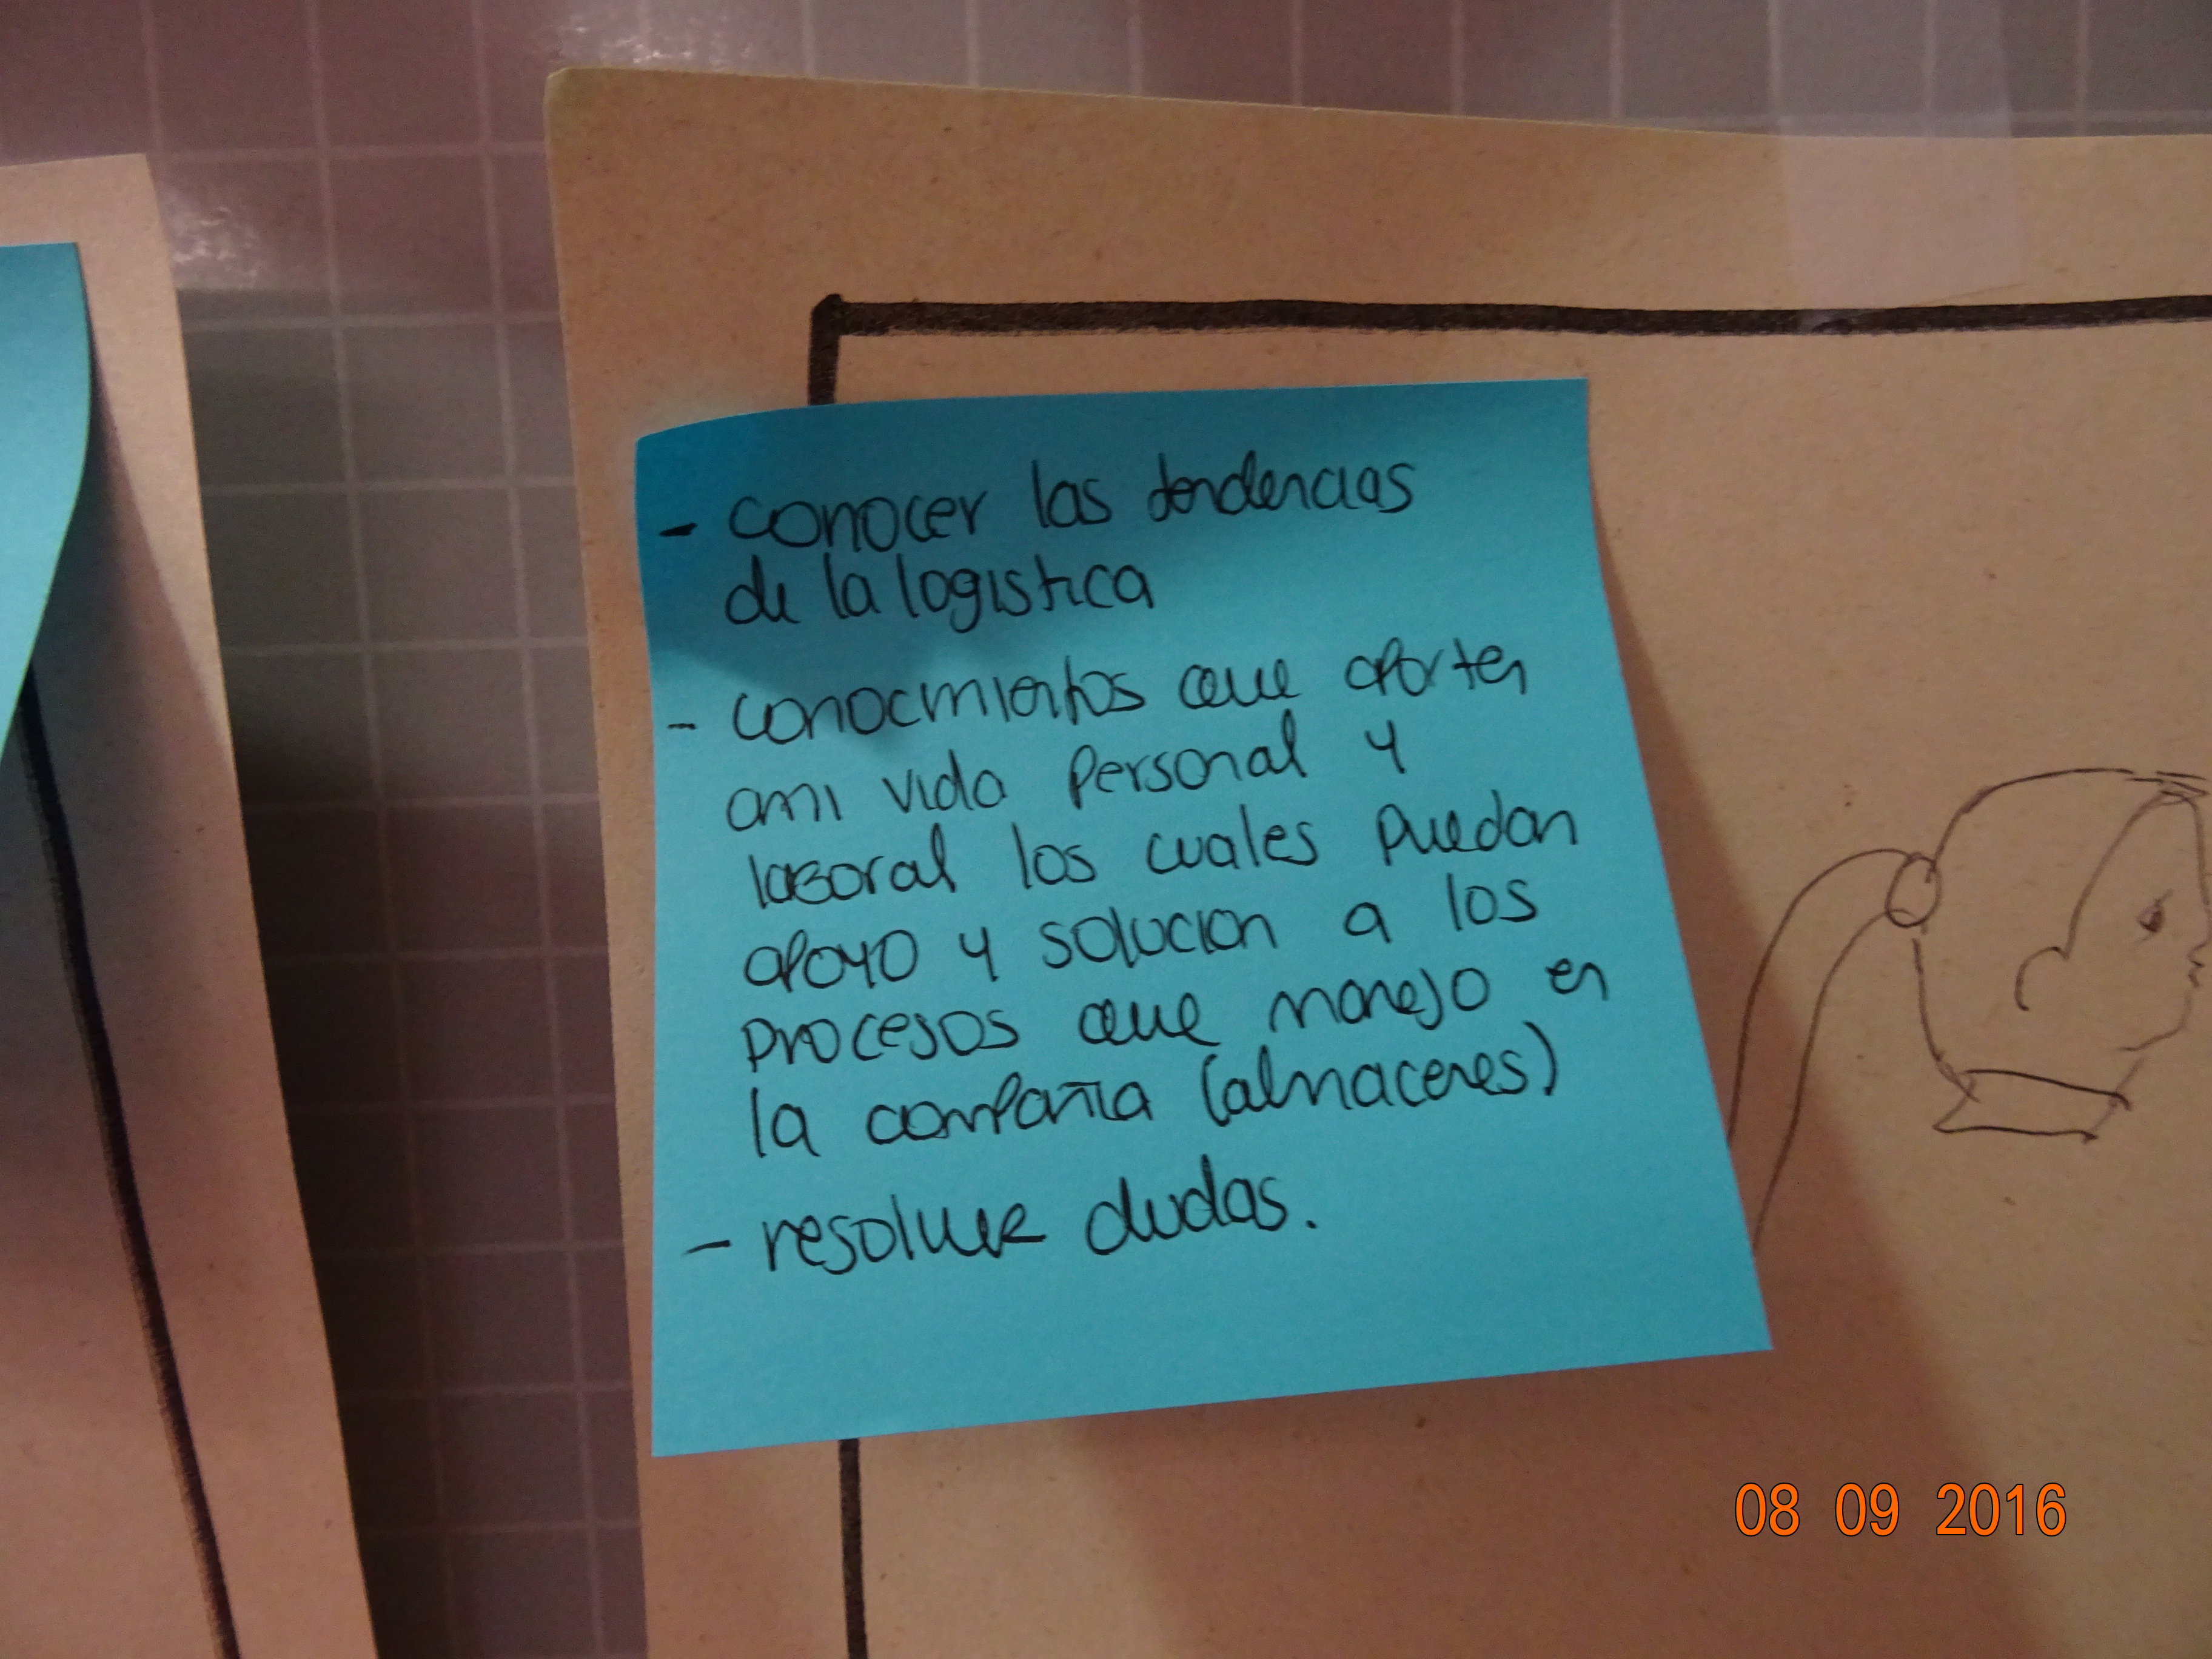 - conocer las tendencias
de la logistica
- conocimientos que aporten
ami vida personal y
laboral los cuales puedan
apoyo y solucion a los
procesos que manejo en
la compañia (almacenes)
- resolver dudas.
08 09 2016